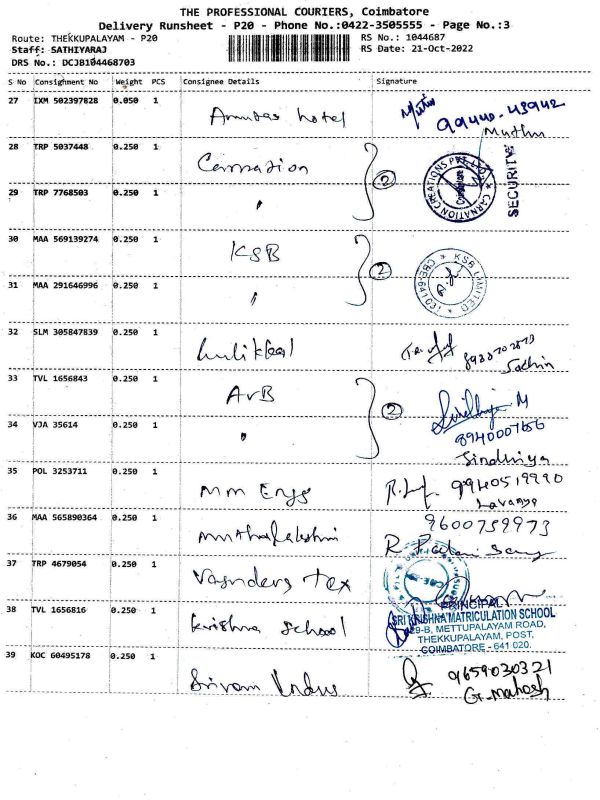 THE PROFESSIONAL COURIERS, Coimbatore
Delivery Runsheet - P20 - Phone No.:0422-3505555 - Page No.:3
Route: THEKKUPALAYAM - P20
RS No.: 1044687
Staff: SATHIYARAJ
RS Date: 21-Oct-2022
DRS No.: DCJB104468703
S No Consignment No Weight PCS Consignee Details Signature
27 IXM 502397828 0.050 1 hotel 99440-43942
Muthu
28 TRP 5037448 0.250 1 Carnation 2 CARNATION CREATIONS PVT LTD Coimbatore SECURITY
29 TRP 7768503 0.250 1 "
30 MAA 569139274 0.250 1 KSB 2 KSB LIMITED CBE-641031
31 MAA 291646996 0.250 1 "
32 SLM 305847839 0.250 1
Sachin
33 TVL 1656843 0.250 1 ArB 2 M
34 VJA 35614 0.250 1 " 8940007656
Sindhiya
35 POL 3253711 0.250 1 mm Engg 9940519990
Lavanya
36 MAA 565890364 0.250 1 muthulakshmi 9600759973
37 TRP 4679054 0.250 1 Tex
PRINCIPAL
38 TVL 1656816 0.250 1 krishna school SRI KRISHNA MATRICULATION SCHOOL
29-B, METTUPALAYAM ROAD,
THEKKUPALAYAM, POST,
COIMBATORE - 641 020.
39 KOC 60495178 0.250 1 Sriram Indus 9659030321
G. Mahesh